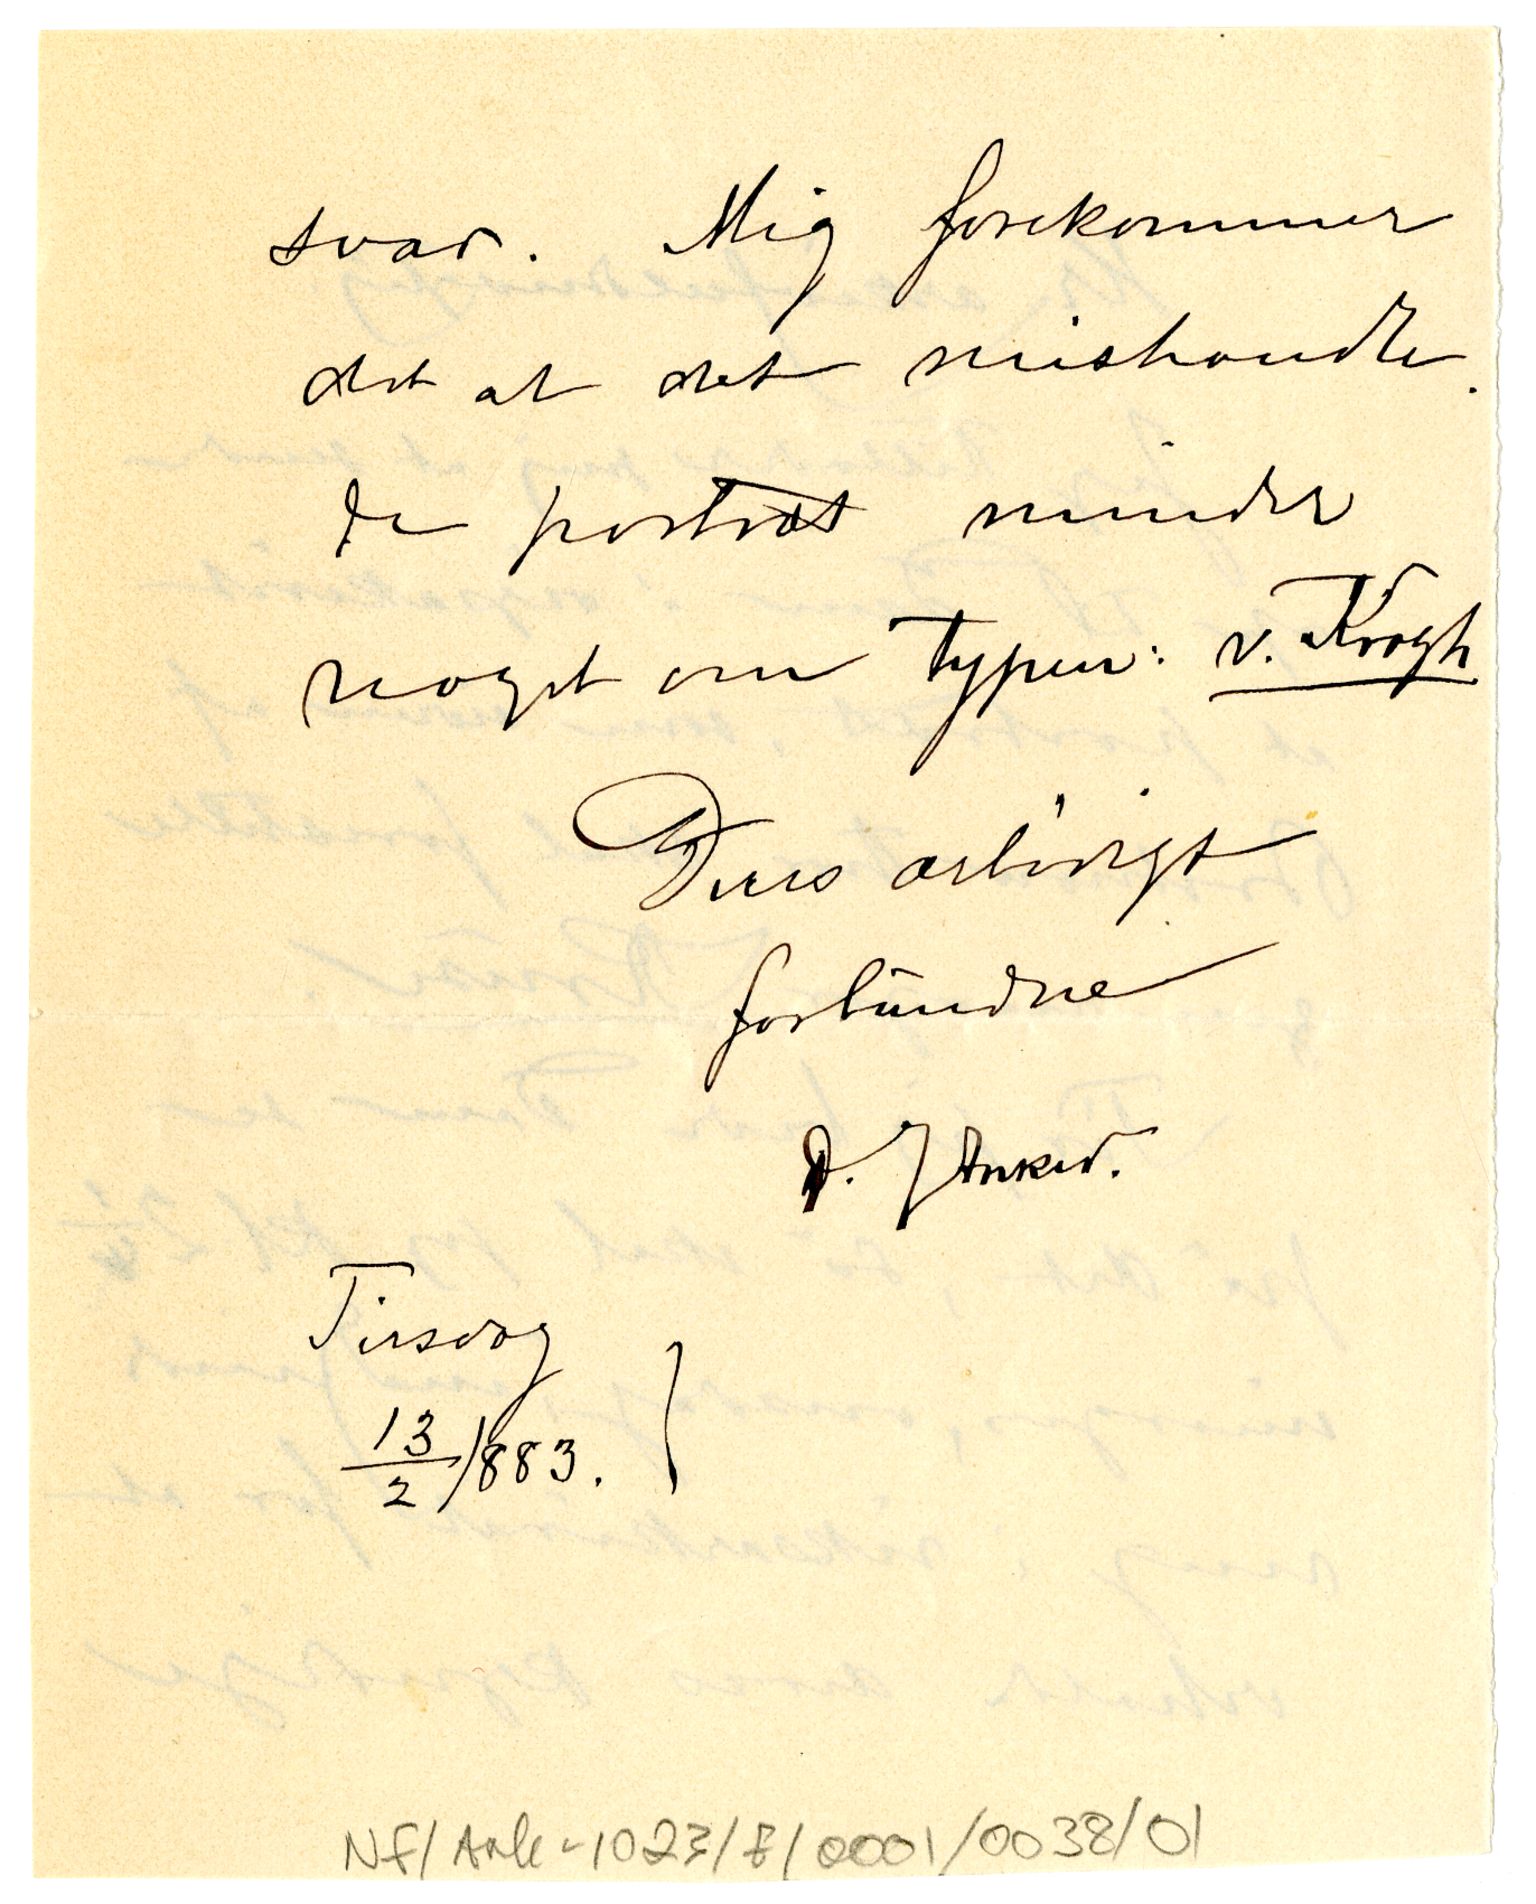 svar. Mig forekommer
det at det mishandle.
de portræt minder
noget om typen: v. Krogh
Deres ærbödigst
forbundne
D. J Anker.
Tirsdag
13/2 1883.
NF/Ark-1023/F/0001/0038/01